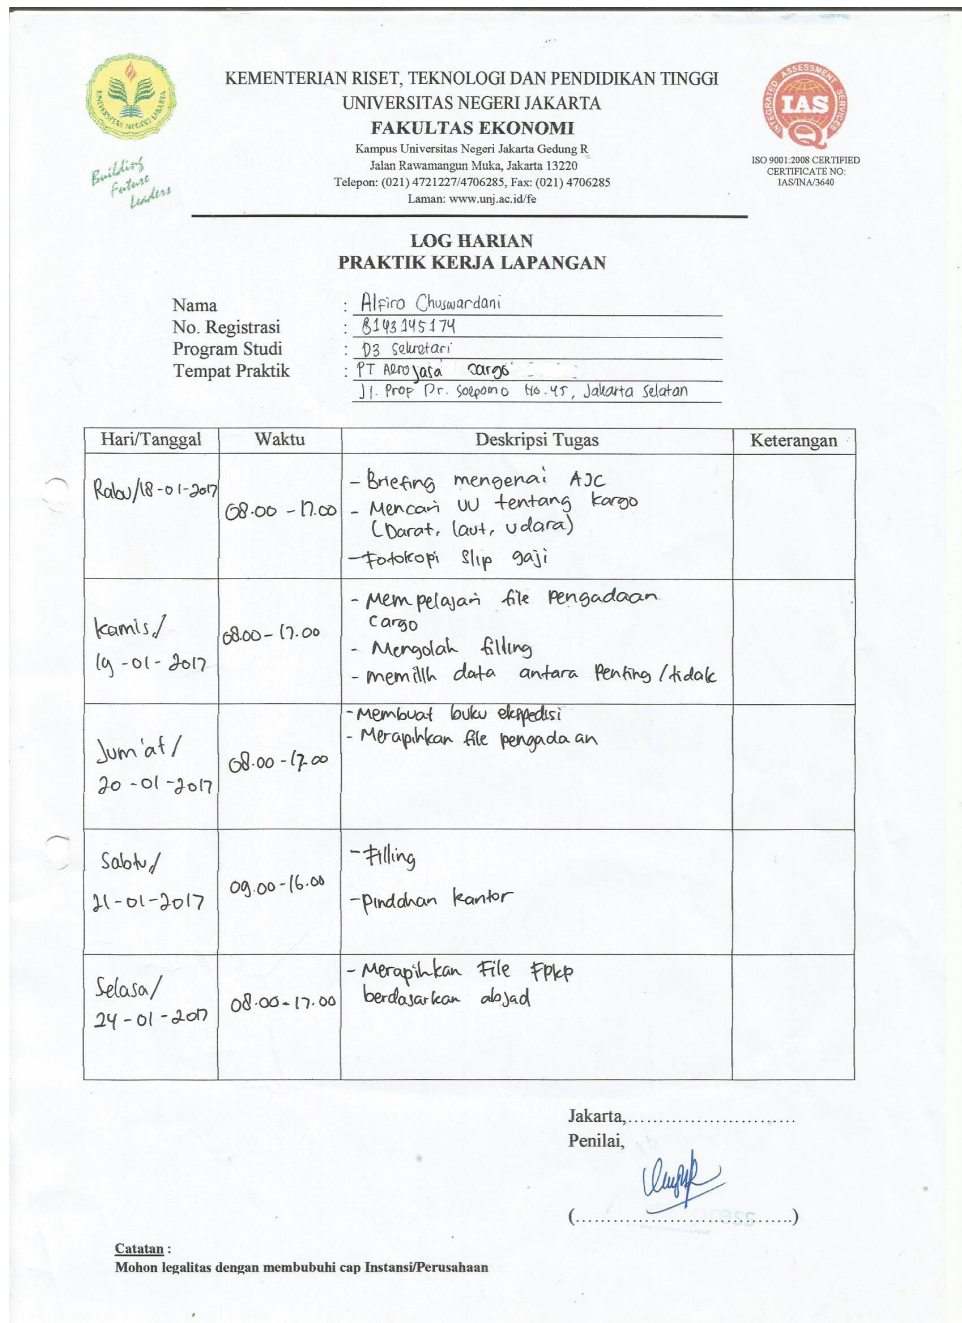 KEMENTERIAN RISET, TEKNOLOGI DAN PENDIDIKAN TINGGI
UNIVERSITAS NEGERI JAKARTA
FAKULTAS EKONOMI
Kampus Universitas Negeri Jakarta Gedung R
Jalan Rawamangun Muka, Jakarta 13220
Telepon: (021) 4721227/4706285, Fax: (021) 4706285
Laman: www.unj.ac.id/fe
UNIVERSITAS NEGERI JAKARTA
Building
Future
Leaders
INTEGRATED ASSESSMENT SERVICES
IAS
ISO 9001:2008 CERTIFIED
CERTIFICATE NO:
IAS/INA/3640
LOG HARIAN
PRAKTIK KERJA LAPANGAN
Nama : Alfiro Chuswardani
No. Registrasi : 8143145174
Program Studi : D3 Sekretari
Tempat Praktik : PT Aerojasa cargo
Jl. Prof Dr. Soepomo No.45, Jakarta Selatan
Hari/Tanggal Waktu Deskripsi Tugas Keterangan
Rabu/18-01-2017 08.00 - 17.00 - Briefing mengenai AJC
- Mencari UU tentang kargo
(Darat, laut, udara)
- Fotokopi slip gaji
Kamis/
19-01-2017 08.00 - 17.00 - Mempelajari file Pengadaan
cargo
- Mengolah filling
- memilih data antara Penting/tidak
Jum'at/
20-01-2017 08.00 - 17.00 - Membuat buku ekspedisi
- Merapihkan file pengadaan
Sabtu/
21-01-2017 09.00 - 16.00 - Filling
- pindahan kantor
Selasa/
24-01-2017 08.00 - 17.00 - Merapihkan File FPKP
berdasarkan abjad
Jakarta,...........................
Penilai,
(...................................)
Catatan :
Mohon legalitas dengan membubuhi cap Instansi/Perusahaan